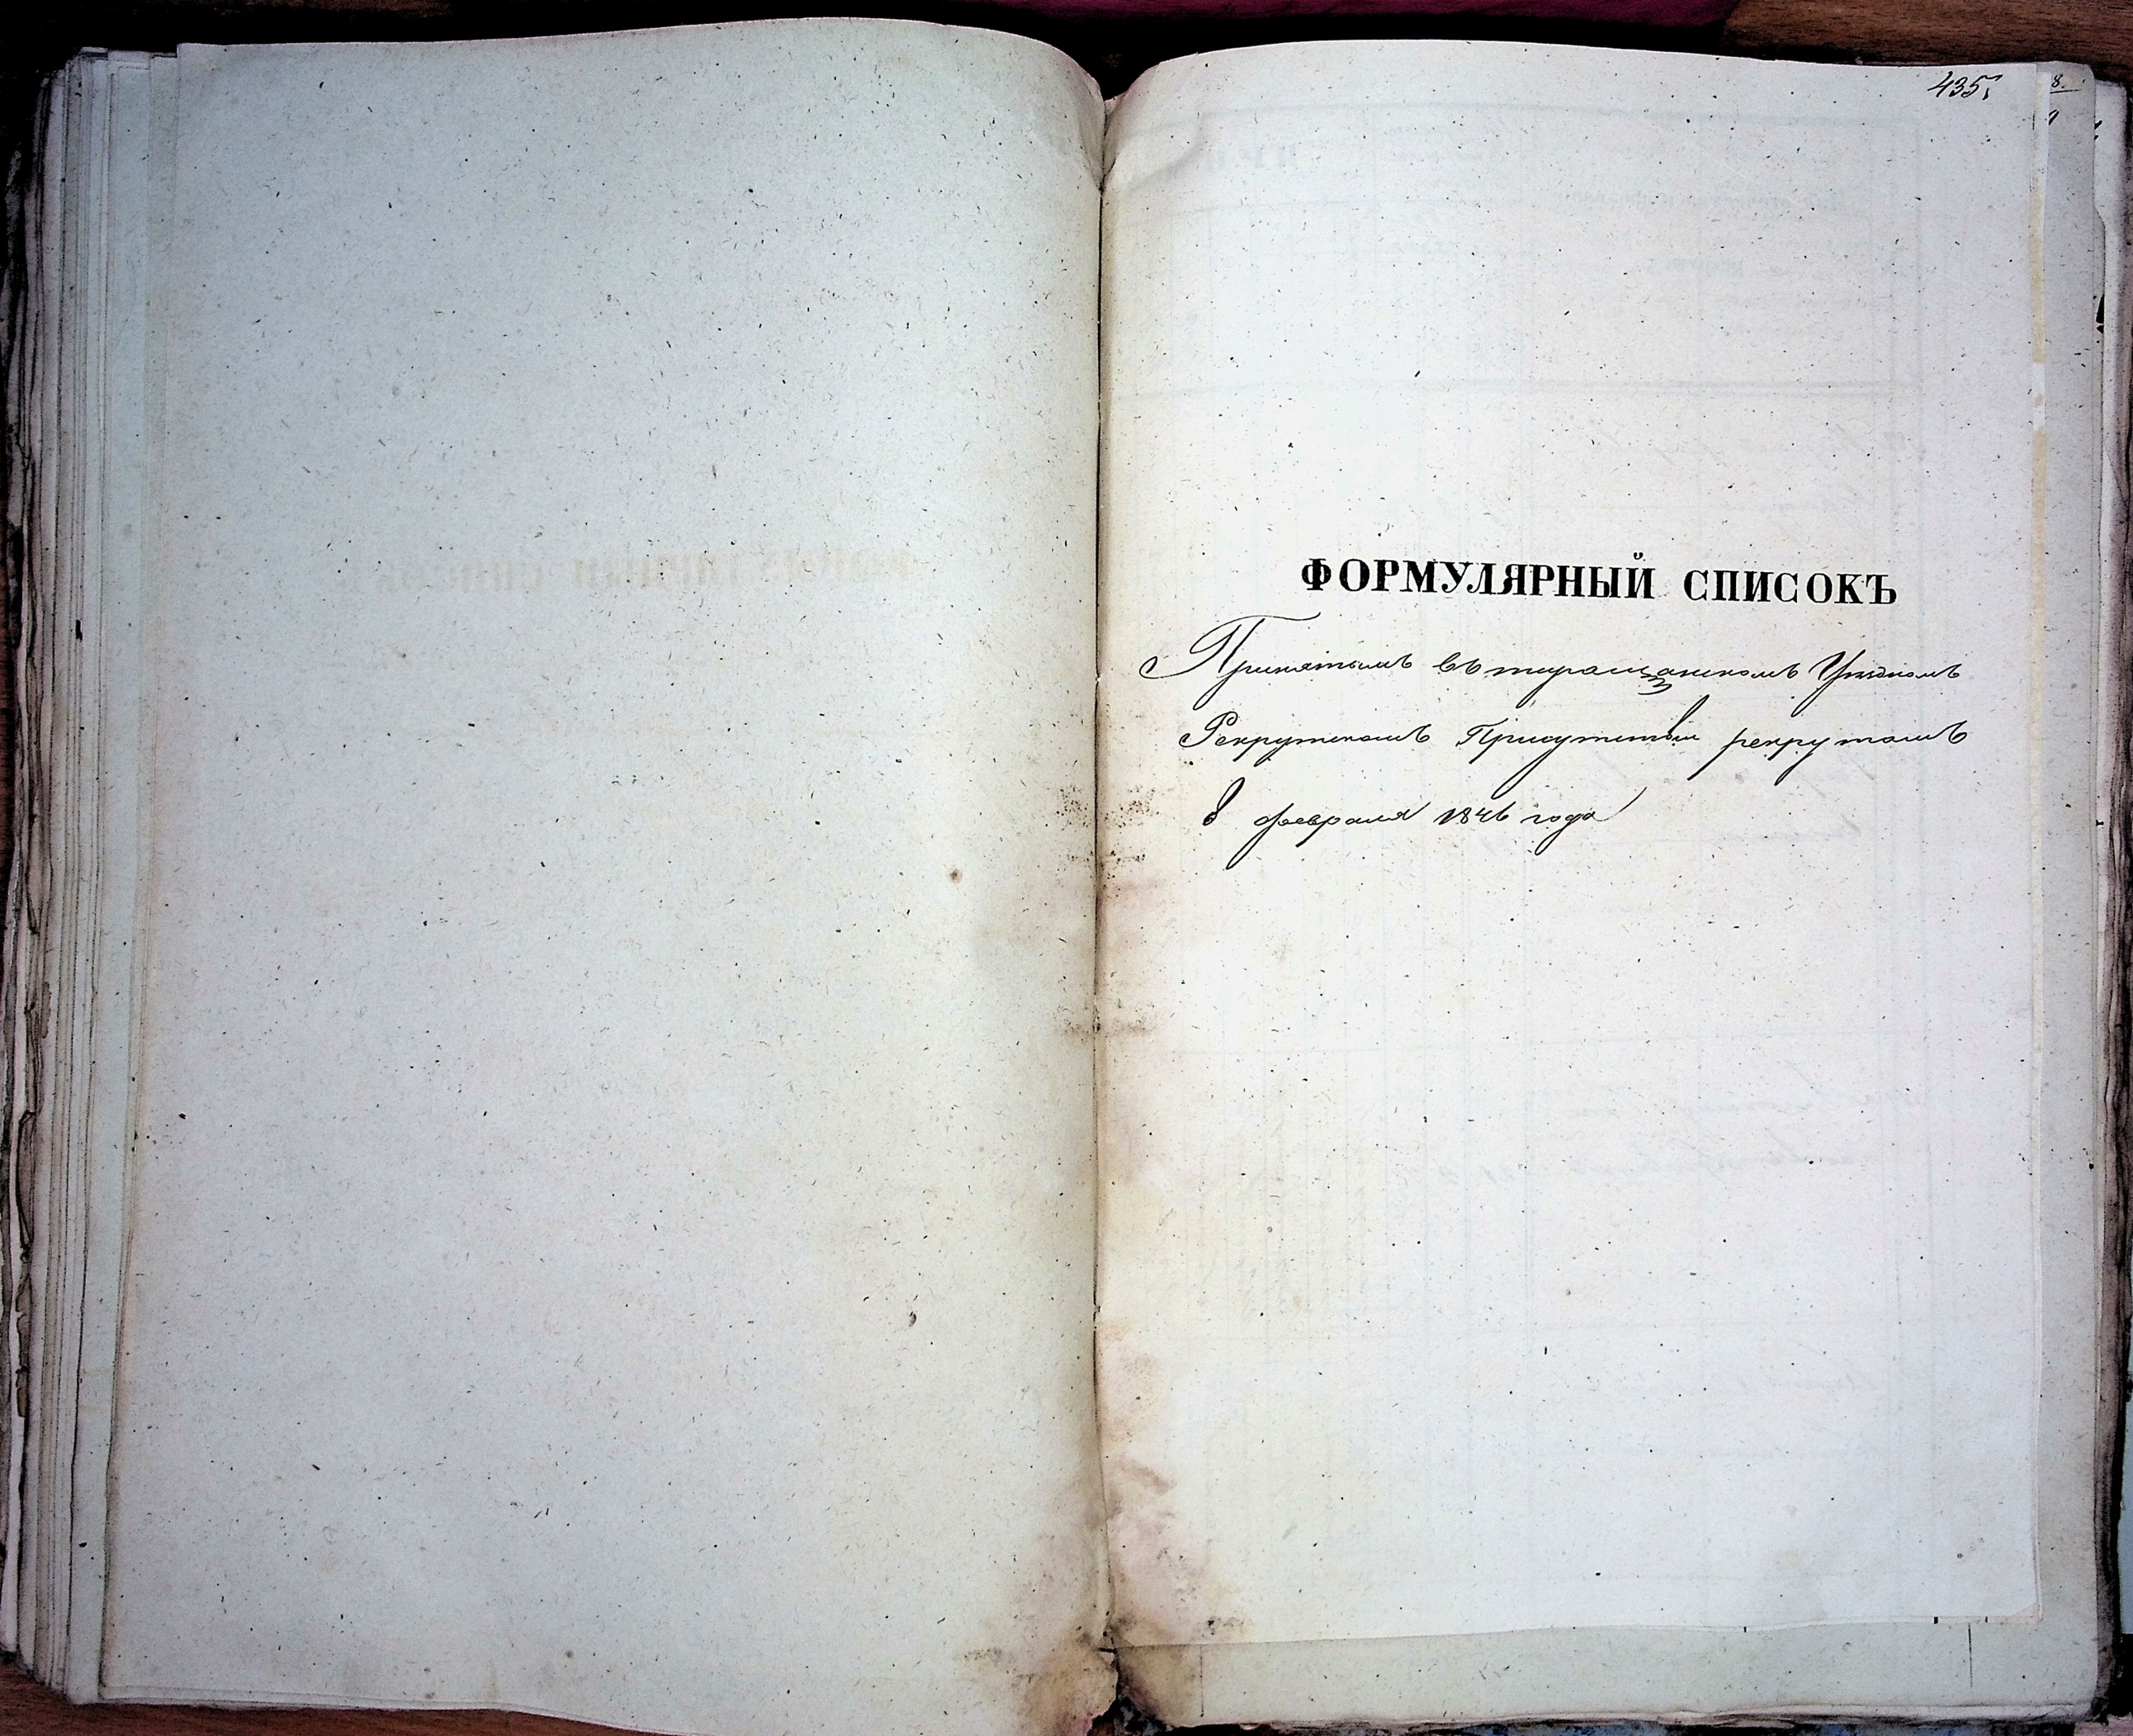 435
8.
ФОРМУЛЯРНЫЙ СПИСОКЪ
Принятымъ въ таращанскомъ Уѣздномъ
Рекрутскомъ Присутствіи рекрутамъ
8 февраля 1846 года